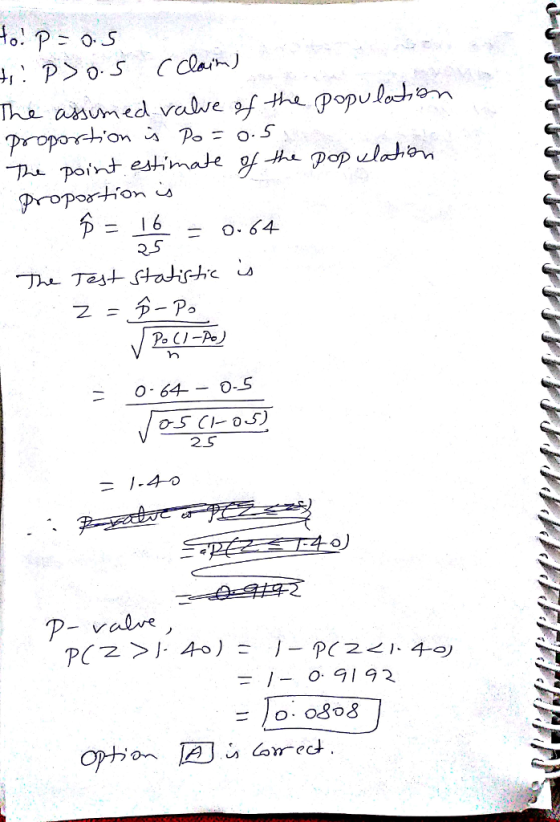 H₀: P = 0.5
H₁: P > 0.5 (Claim)
The assumed value of the population
proportion is P₀ = 0.5
The point estimate of the population
proportion is
p̂ = 16/25 = 0.64
The Test Statistic is
Z = (p̂ - P₀) / √(P₀(1-P₀)/n)
= (0.64 - 0.5) / √(0.5(1-0.5)/25)
= 1.40
∴ P-value = P(Z ≤ z)
= P(Z ≤ 1.40)
= 0.9192
P-value,
P(Z > 1.40) = 1 - P(Z < 1.40)
= 1 - 0.9192
= 0.0808
Option A is correct.